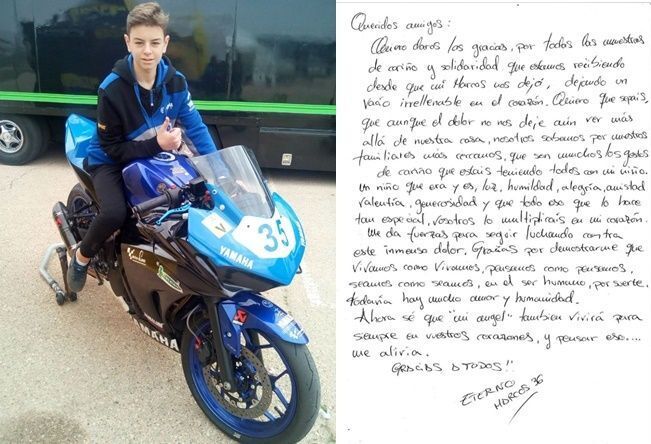 V
35
YAMAHA
YAMAHA
Queridos amigos:
Quiero daros las gracias, por todas las muestras
de cariño y solidaridad que estamos recibiendo
desde que mi Marcos nos dejó, dejando un
vacío irrellenable en el corazón. Quiero que sepais,
que aunque el dolor no nos deje aún ver más
allá de nuestra casa, nosotros sabemos por nuestros
familiares más cercanos, que son muchos los gestos
de cariño que estais teniendo todos con mi niño.
Un niño que era y es, luz, humildad, alegría, amistad
valentía, generosidad y que todo eso que lo hace
tan especial, vosotros lo multiplicais en mi corazón.
Me da fuerzas para seguir luchando contra
este inmenso dolor. Gracias por demostrarme que
vivamos como vivamos, pensemos como pensemos,
seamos como seamos, en el ser humano, por suerte.
todavía hay mucho amor y humanidad.
Ahora sé que "mi angel" tambien vivirá para
siempre en vuestros corazones, y pensar eso....
me alivia.
GRACIAS A TODOS!!
ETERNO
MARCOS 36